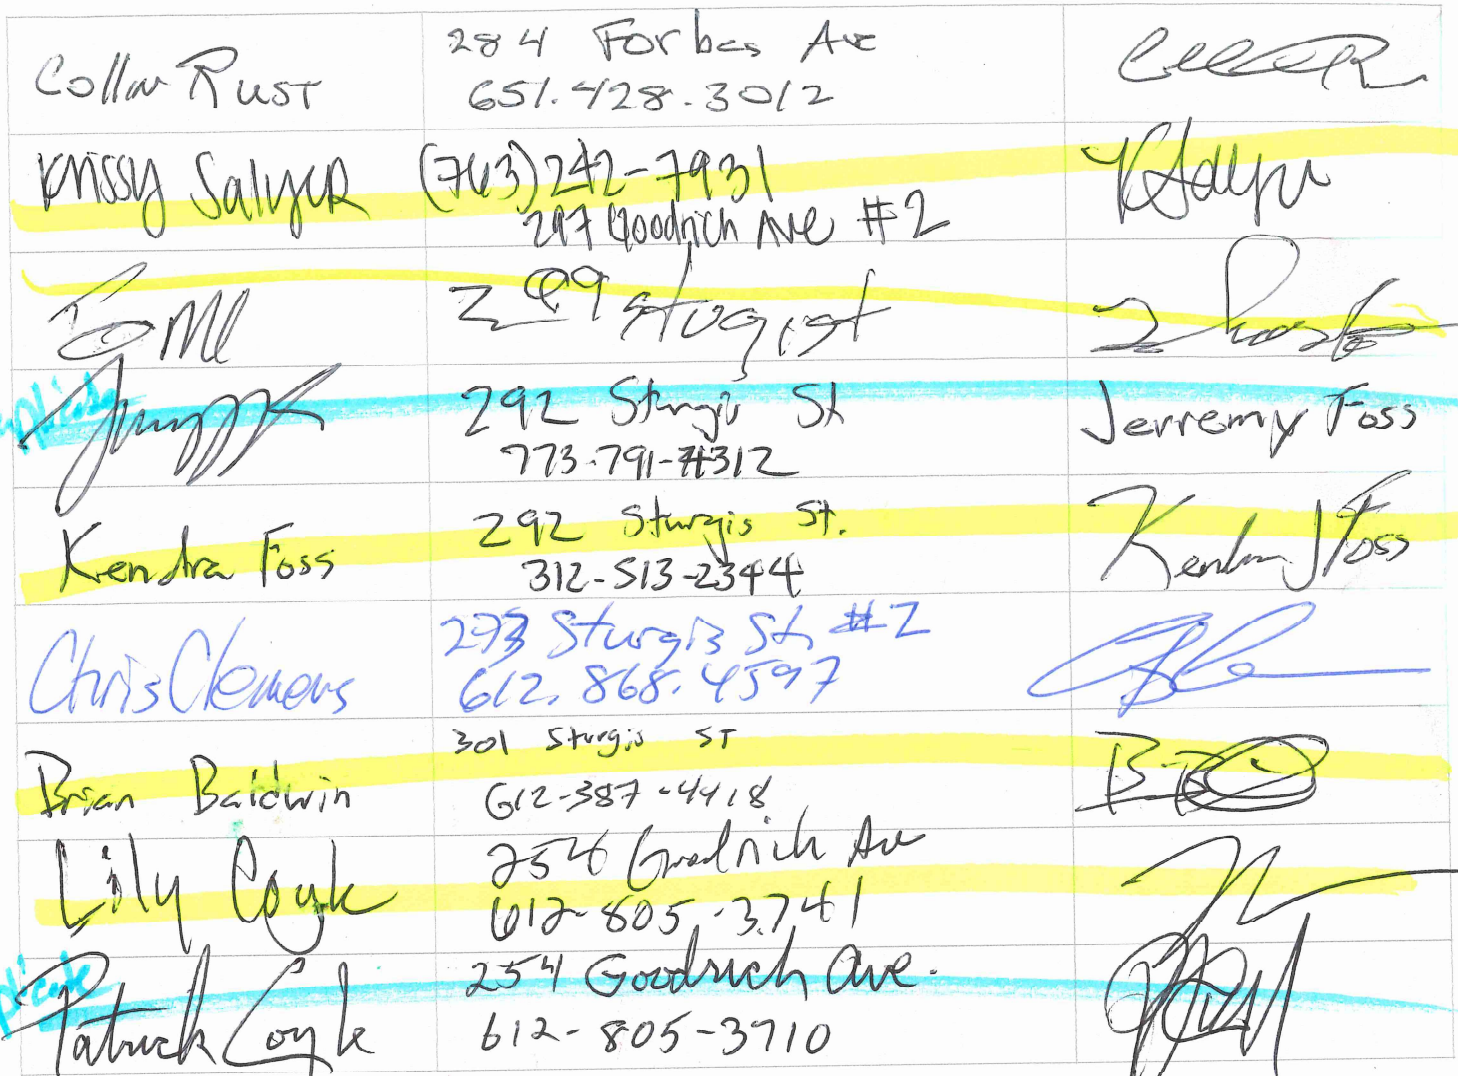 Collan Rust
284 Forbes Ave
651.428.3012
Krissy Salyer
(763)242-7931
297 Goodrich Ave #2
299 Stugist
292 Sturgis St
773-791-4312
Jerremy Foss
Kendra Foss
292 Sturgis St.
312-513-2344
Kendra J Foss
Chris Clemens
293 Sturgis St, #2
612.868.4597
Brian Baldwin
301 Sturgis ST
612-387-4418
Lily Coyle
254 Goodrich Ave
612-805-3741
Patrick Coyle
254 Goodrich Ave.
612-805-3710